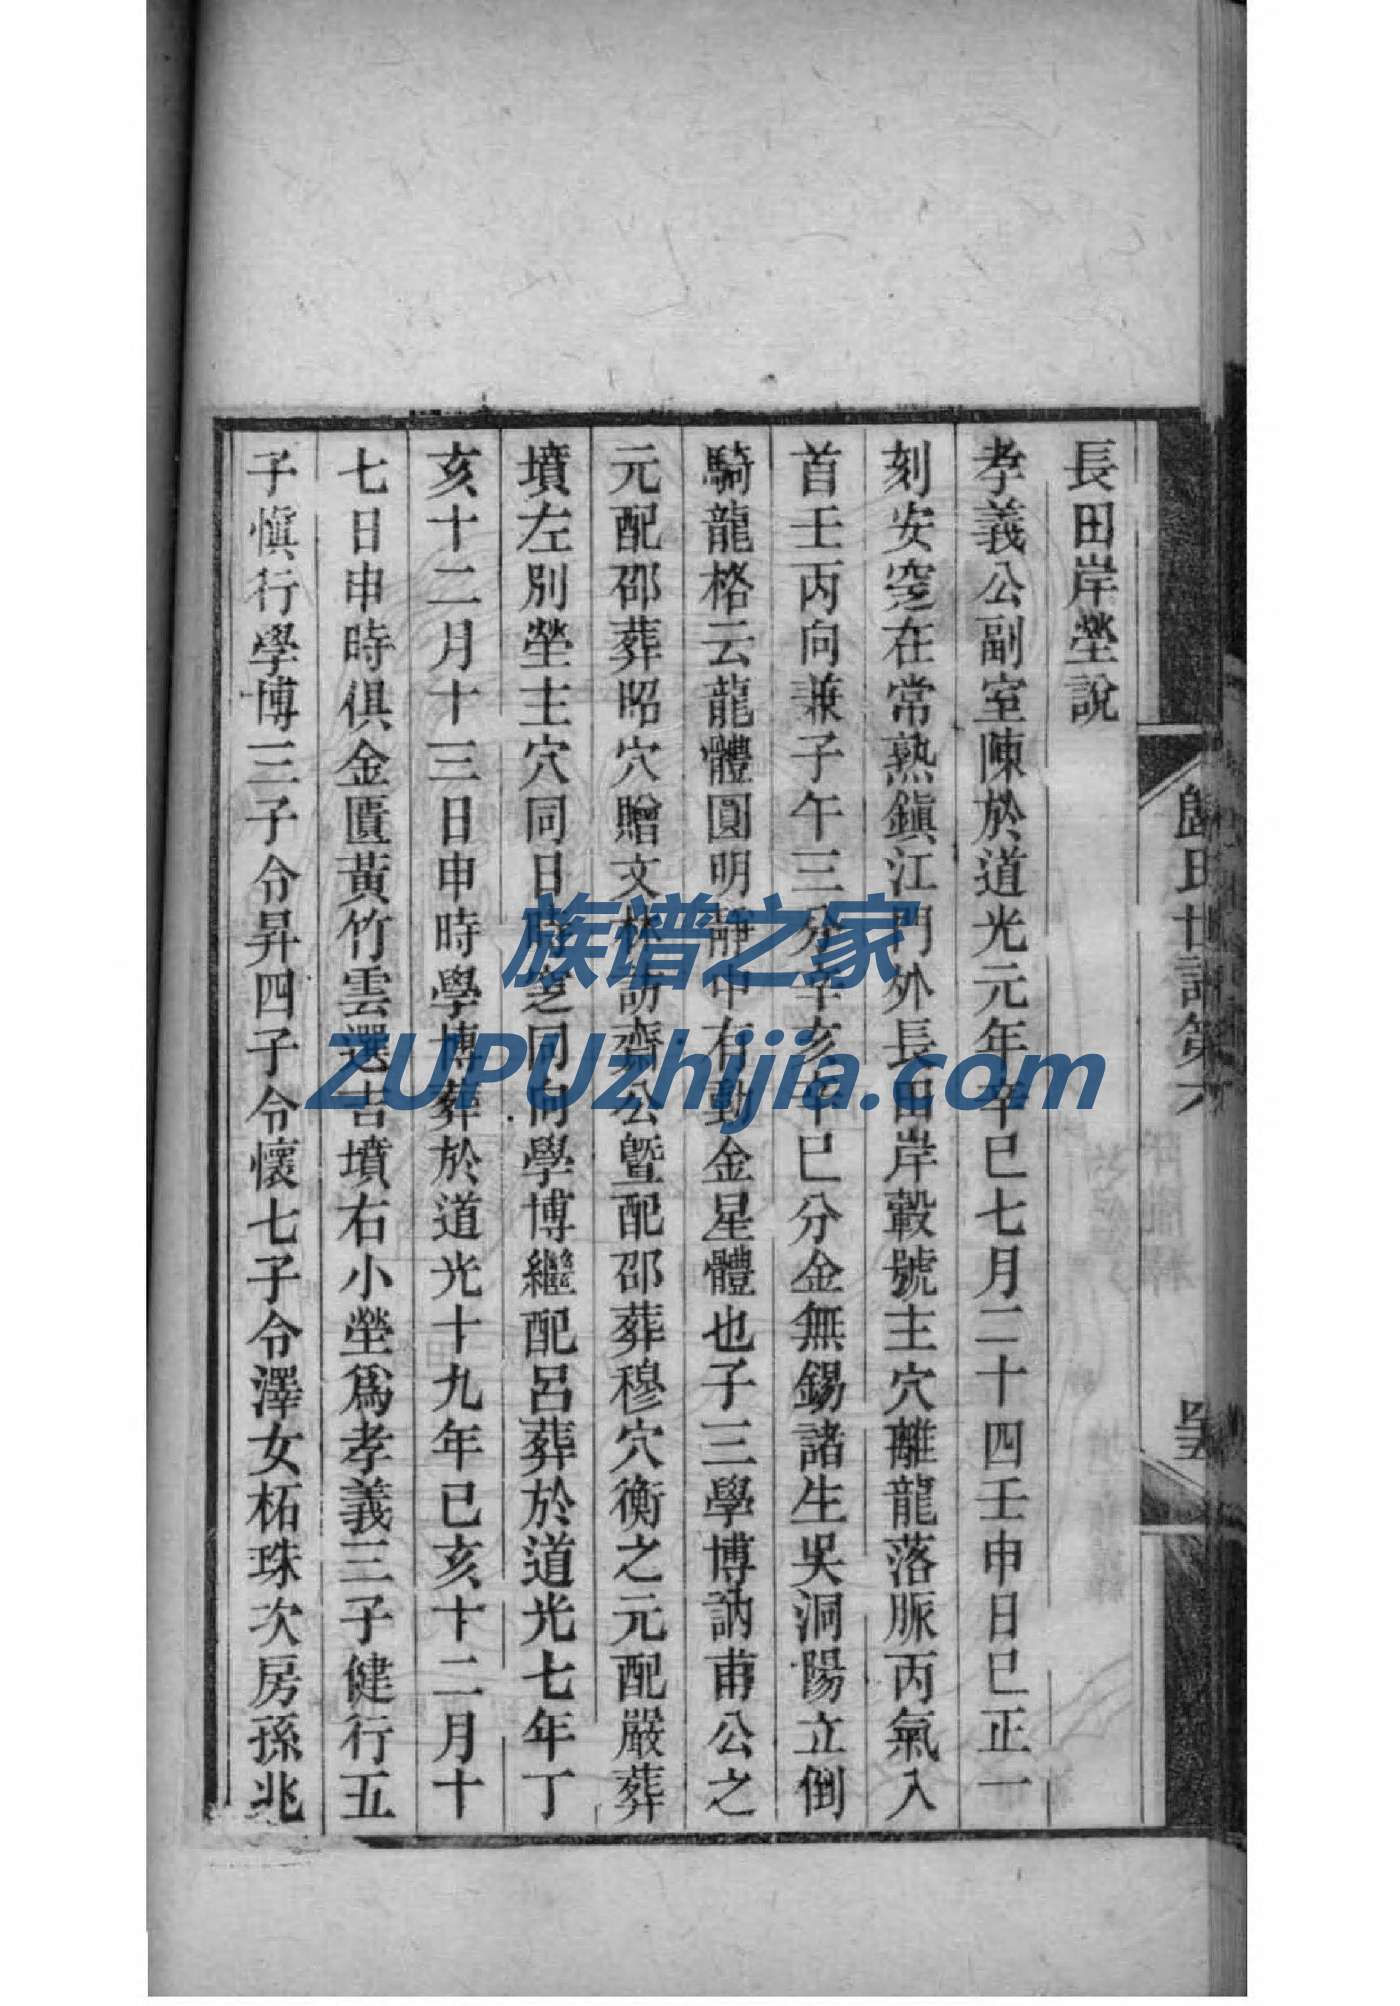 長田岸塋說
孝義公副室陳於道光元年辛巳七月二十四壬申日巳正一
刻安窆在常熟鎮江門外長田岸穀號主穴離龍落脈丙氣入
首壬丙向兼子午三分辛亥辛巳分金無錫諸生吳洞陽立倒
騎龍格云龍體圓明靜中有動金星體也子三學博訥甫公之
元配邵葬昭穴贈文林訪齋公曁配邵葬穆穴衡之元配嚴葬
墳左別塋主穴同日時窆同向學博繼配呂葬於道光七年丁
亥十二月十三日申時學博葬於道光十九年己亥十二月十
七日申時俱金匱黃竹雲選吉墳右小塋爲孝義三子健行五
子愼行學博三子令昇四子令懷七子令澤女柘珠次房孫兆
歸氏世譜第六
族谱之家
ZUPUzhijia.com